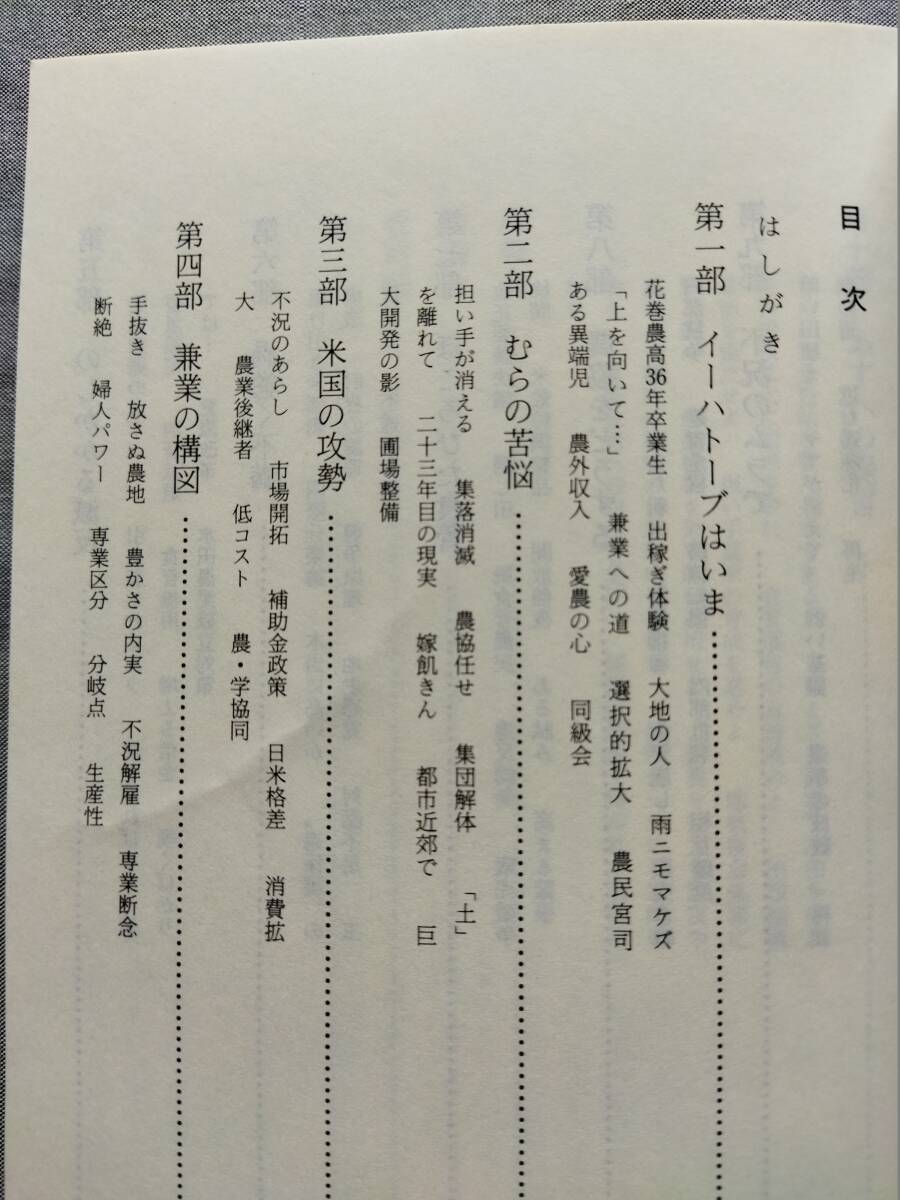 目次
はしがき
第一部　イーハトーブはいま……………………
花巻農高36年卒業生　出稼ぎ体験　大地の人　雨ニモマケズ
「上を向いて…」　兼業への道　選択的拡大　農民宮司
ある異端児　農外収入　愛農の心　同級会
第二部　むらの苦悩……………………
担い手が消える　集落消滅　農協任せ　集団解体　「土」
を離れて　二十三年目の現実　嫁飢きん　都市近郊で　巨
大開発の影　圃場整備
第三部　米国の攻勢……………………
不況のあらし　市場開拓　補助金政策　日米格差　消費拡
大　農業後継者　低コスト　農・学協同
第四部　兼業の構図……………………
手抜き　放さぬ農地　豊かさの内実　不況解雇　専業断念
断絶　婦人パワー　専業区分　分岐点　生産性